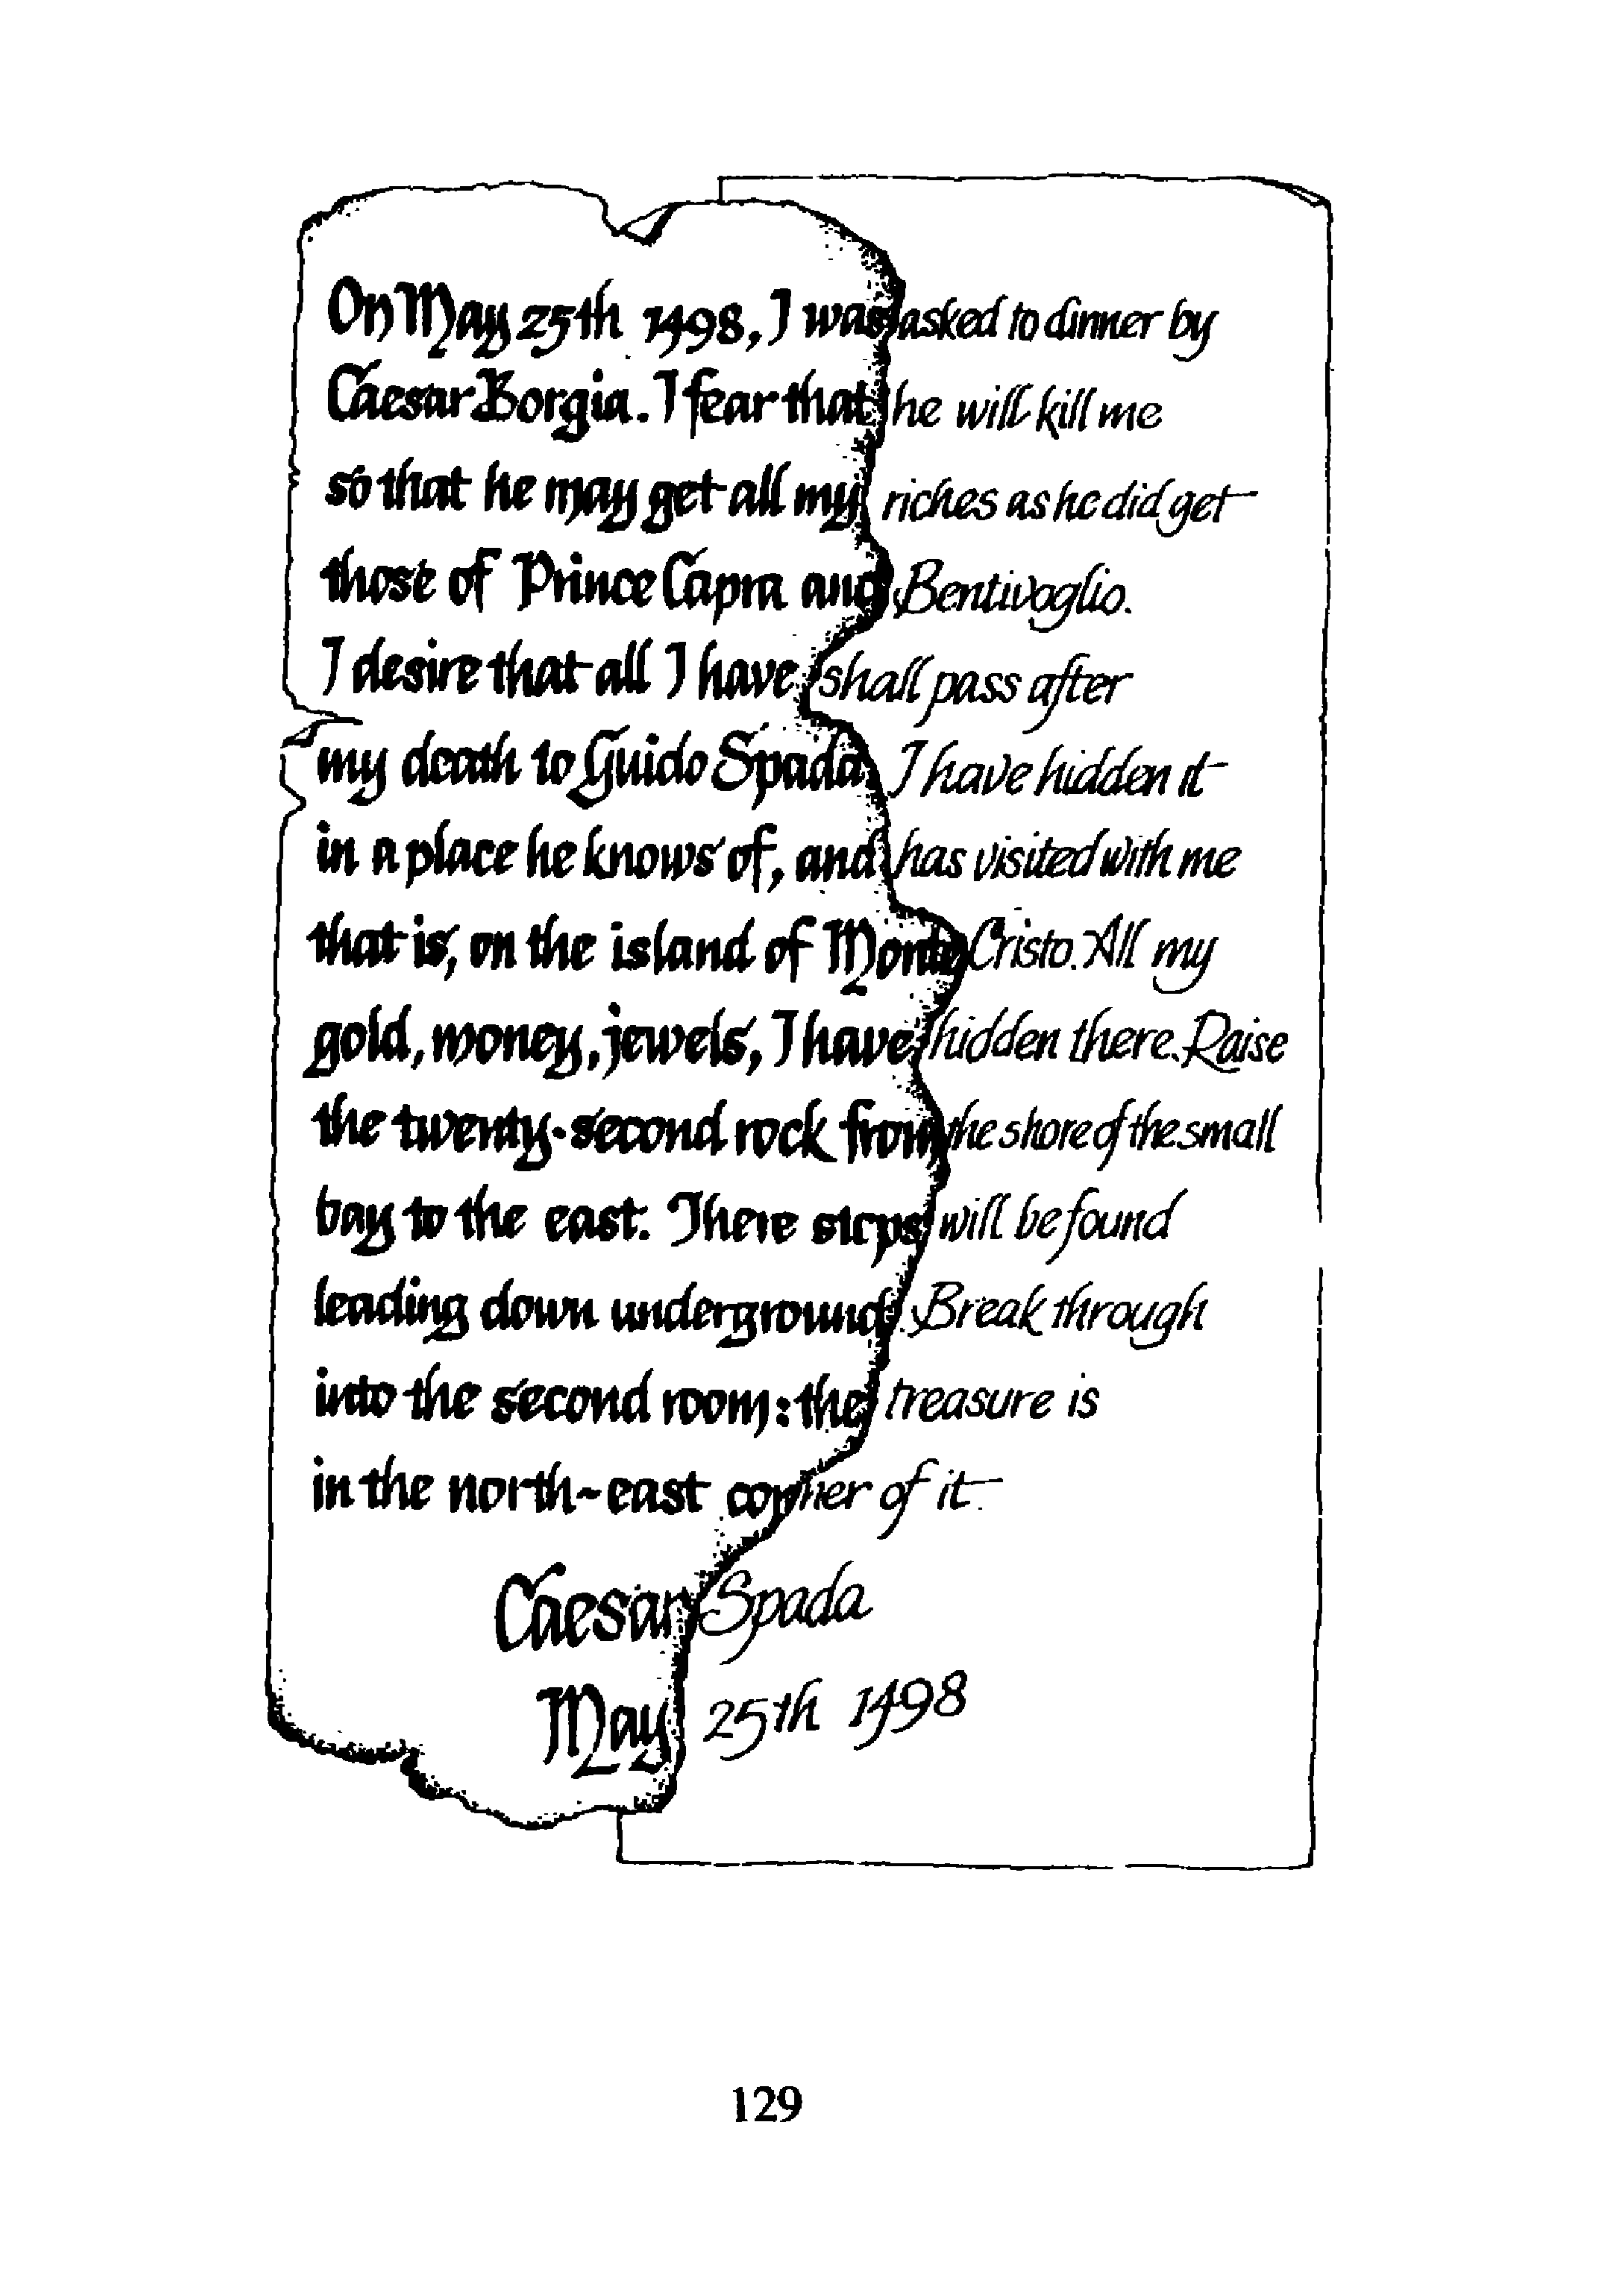 On May 25th 1498, I was asked to dinner by
Caesar Borgia. I fear that he will kill me
so that he may get all my riches as he did get
those of Prince Capra and Bentivoglio.
I desire that all I have shall pass after
my death to Guido Spada. I have hidden it
in a place he knows of, and has visited with me
that is, on the island of Monte Cristo. All my
gold, money, jewels, I have hidden there. Raise
the twenty-second rock from the shore of the small
bay to the east. There steps will be found
leading down underground. Break through
into the second room: the treasure is
in the north-east corner of it.
Caesar Spada
May 25th 1498
129